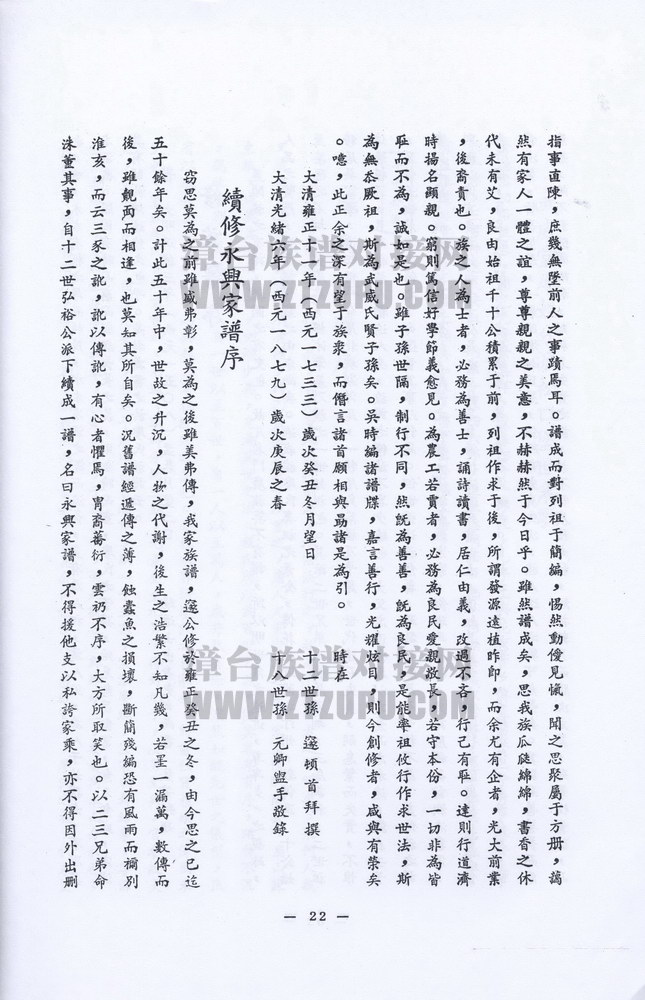 指事直陳，庶幾無墜前人之事蹟焉耳。譜成而對列祖于簡編，惕然動僾見愾，聞之思聚屬于方册，藹
然有家人一體之誼，尊尊親親之美意，不赫赫然于今日乎。雖然譜成矣，思我族瓜瓞綿綿，書香之休
代未有艾，良由始祖千十公積累于前，列祖作求于後，所謂發源遠植昨卽，而余尤有企者，光大前業
，後裔責也。族之人為士者，必務為善士，誦詩讀書，居仁由義，改過不吝，行己有恥。達則行道濟
時揚名顯親。窮則篤信好學節義愈見。為農工若賈者，必務為良民愛親敬長，若守本份，一切非為皆
恥而不為，誠如是也。雖子孫世隔，制行不同，然旣為善善，旣為良民，是能率祖攸行作求世法，斯
為無忝厥祖，斯為武威氏賢子孫矣。吳時編諸譜牒，嘉言善行，光耀炫目，則今創修者，咸與有榮矣
。噫，此正余之深有望于族衆，而僭言諸首願相與勗諸是為引。 時在
大清雍正十一年（西元一七三三）歲次癸丑冬月望日 十一世孫 邃頓首拜撰
大清光緒六年（西元一八七九）歲次庚辰之春 十八世孫 元卿盥手敬錄
續修永興家譜序
窃思莫為之前雖盛弗彰，莫為之後雖美弗傳，我家族譜，邃公修於雍正癸丑之冬，由今思之已迄
五十餘年矣。計此五十年中，世故之升沉，人物之代謝，後生之浩繁不知凡幾，若星一漏萬，數傳而
後，雖覿面而相逢，也莫知其所自矣。況舊譜經遞傳之薄，蝕蠹魚之損壞，斷簡殘編恐有風雨而禰別
淮亥，而云三豕之訛，訛以傳訛，有心者懼焉，胄裔蕃衍，雲礽不序，大方所取笑也。以二三兄弟命
洙董其事，自十二世弘裕公派下續成一譜，名曰永興家譜，不得援他支以私誇家乘，亦不得因外出刪
— 22 —
漳台族谱对接网
WWW.ZTZUPU.COM
漳台族谱对接网
WWW.ZTZUPU.COM